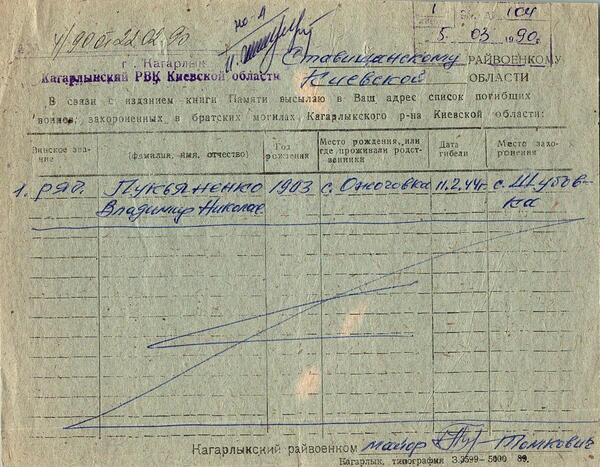 1
Вх. № 104
5 03 1990.
4/90 от 22.02.90
Ставищанскому РАЙВОЕНКОМУ
г. Кагарлык
Кагарлыкский РВК Киевской области
Киевской ОБЛАСТИ
В связи с изданием книги Памяти высылаю в Ваш адрес список погибших
воинов, захороненных в братских могилах Кагарлыкского р-на Киевской области:
Воинское звание (фамилия, имя, отчество) Год рождения Место рождения, или где проживали родственники Дата гибели Место захоронения
1. ряд. Лукьяненко 1903 с. Ожоговка 11.2.44г. с. Шубов-
Владимир Николае ка
Кагарлыкский райвоенком майор Томкович
Кагарлык, типография З.3599-5000 89.